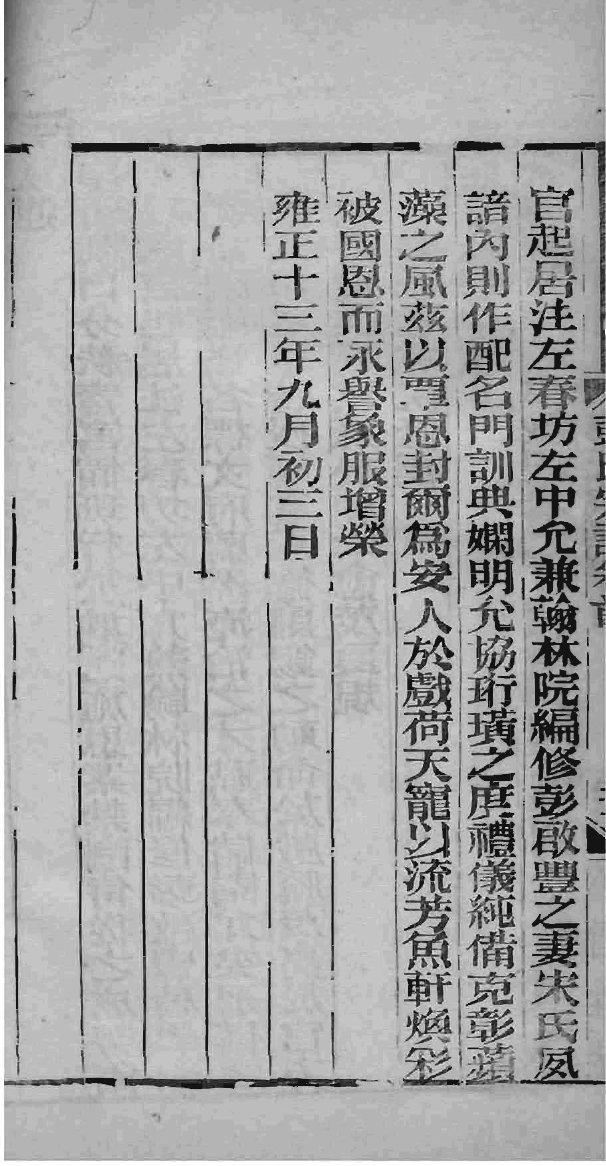 彭氏宗譜卷首
官起居注左春坊左中允兼翰林院編修彭啟豐之妻宋氏夙
諳內則作配名門訓典嫻明允協珩璜之度禮儀純備克彰蘋
藻之風茲以覃恩封爾為安人於戲荷天寵以流芳魚軒煥彩
被國恩而永譽象服增榮
雍正十三年九月初三日